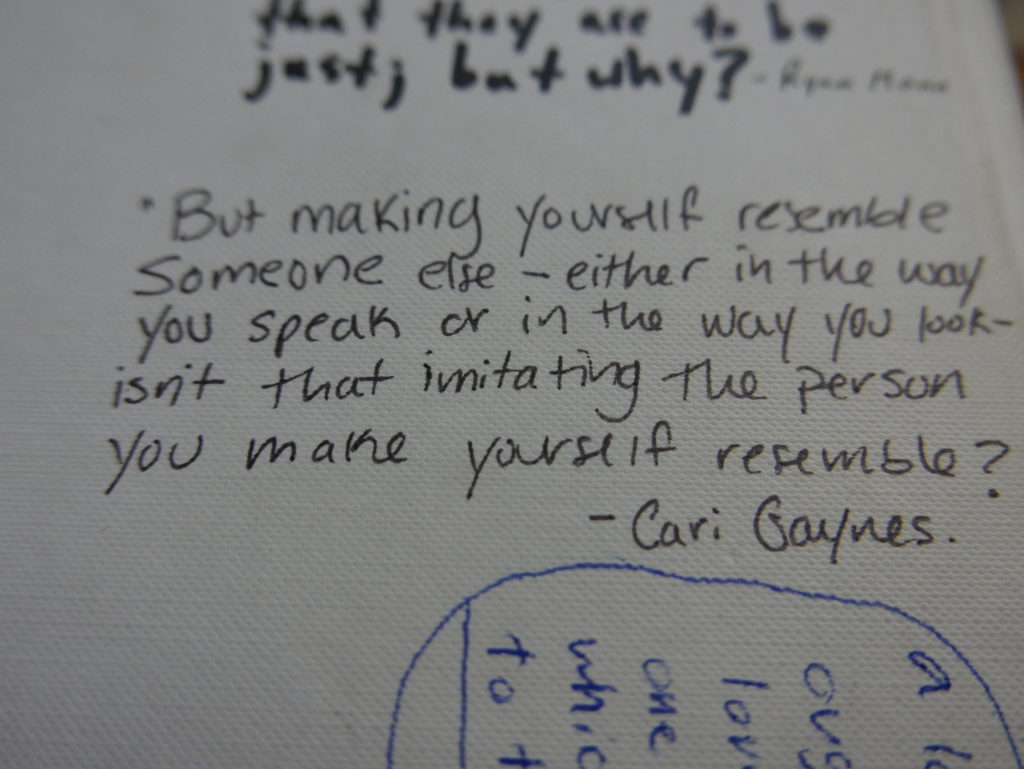 that they are to be
just; but why? - Ryan
· But making yourself resemble
Someone else – either in the way
you speak or in the way you look–
isn't that imitating the person
you make yourself resemble?
– Cari Gaynes.
a
one
which
to